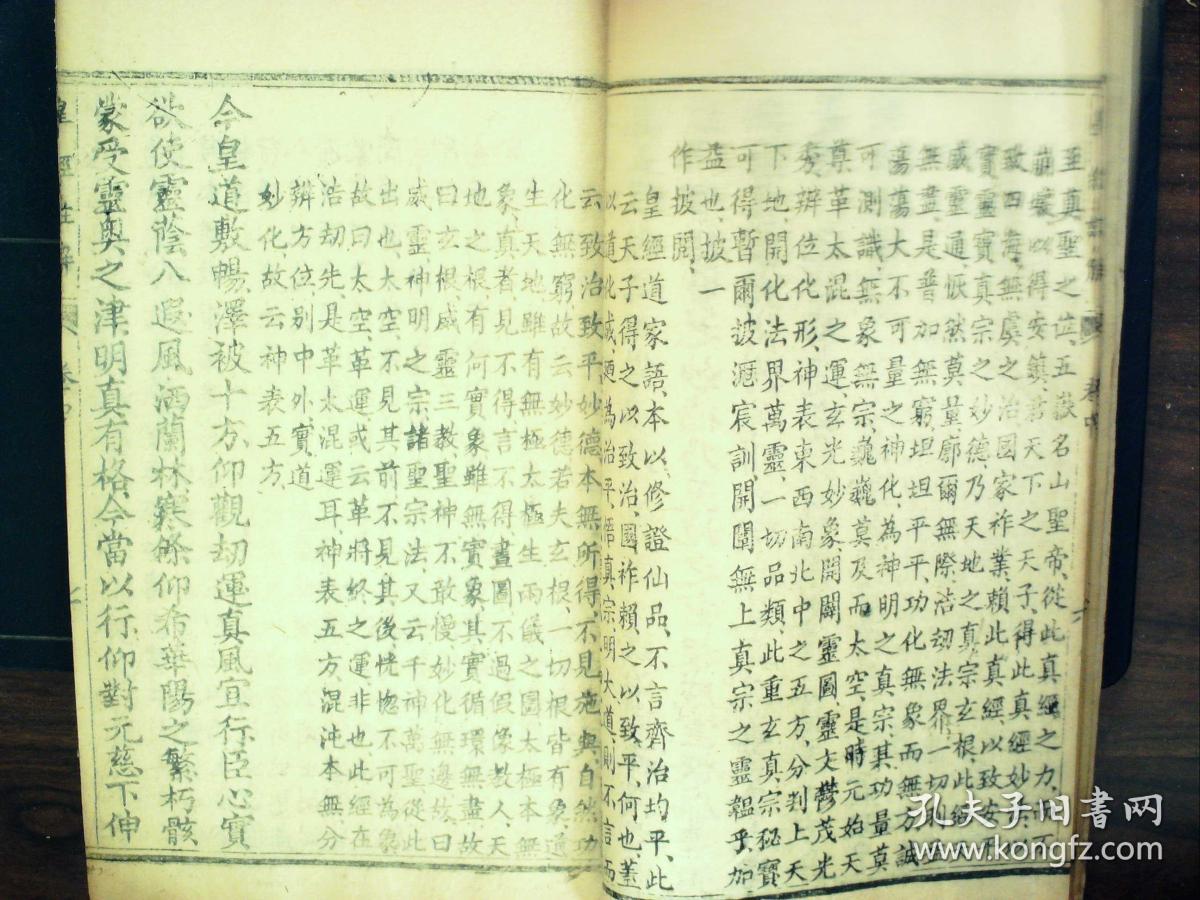 至真聖之位五嶽名山聖帝從此真經之力
崩壞以得安鎮天下之天子得此真經妙
致四海無虞之治國家祚業賴此真經以致安
寶靈寶真宗之妙德乃天地之真宗玄根此經
威靈通恢然莫量廓爾無際浩劫法界一切
無盡是普加無窮坦坦平平功化無象而無方誠
蕩蕩大不可量之神化為神明之真宗其功量莫
可測識無象無宗巍巍莫及而太空是時元始天
尊革太混之運玄光妙象開闢靈圖靈文鬱茂光
秀辨位化形神表東西南北中之五方分判上天
下地開化法界萬靈一切品類此重玄真宗秘寶
可得暫爾披遯宸訓開闡無上真宗之靈韞乎加
益也披一
作披閱
皇經道家語本以修證仙品不言齊治均平此
云天子得之以致治國祚賴之以致平何也蓋
以道化威頑為治平悟真宗明大道則不言而
云致治致平妙德本無所得不見施與自然功
化無窮故云妙德若夫玄根一切根皆有象道
生天地雖有無極太極生兩儀之圖太極本無
象真者見不得言不得畫圖不過假像教人天
地之根有何實象雖無實象其實循環無盡故
曰玄根威靈三教聖神不敢慢妙化無邊故曰
威靈神明之宗諸聖宗法又云千神萬聖從此
出也太空不見其前不見其後恍惚不可為象
故曰太空革運或云革將終之運非也此經在
浩劫先是革太混運耳神表五方混沌本無分
辨方位別中外實道
妙化故云神表五方
今皇道敷暢澤被十方仰觀劫運真風宜行臣心實
欲使靈蔭八遐風洒蘭林寒條仰希華陽之繁朽骸
蒙受靈奧之津明真有格今當以行仰對元慈下伸
皇經註解 卷四
孔夫子旧书网
www.kongfz.com